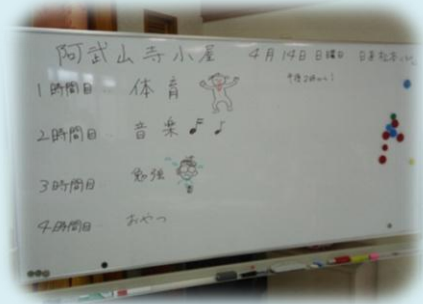 阿武山寺小屋 4月14日 日曜日 日直
1時間目 体育
2時間目 音楽
3時間目 勉強
4時間目 おやつ